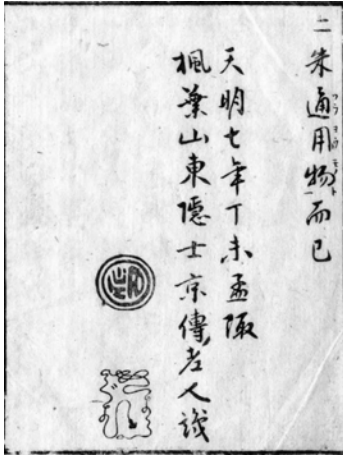 二朱通用物而已
天明七年丁未孟陬
楓葉山東隱士京傳老人識